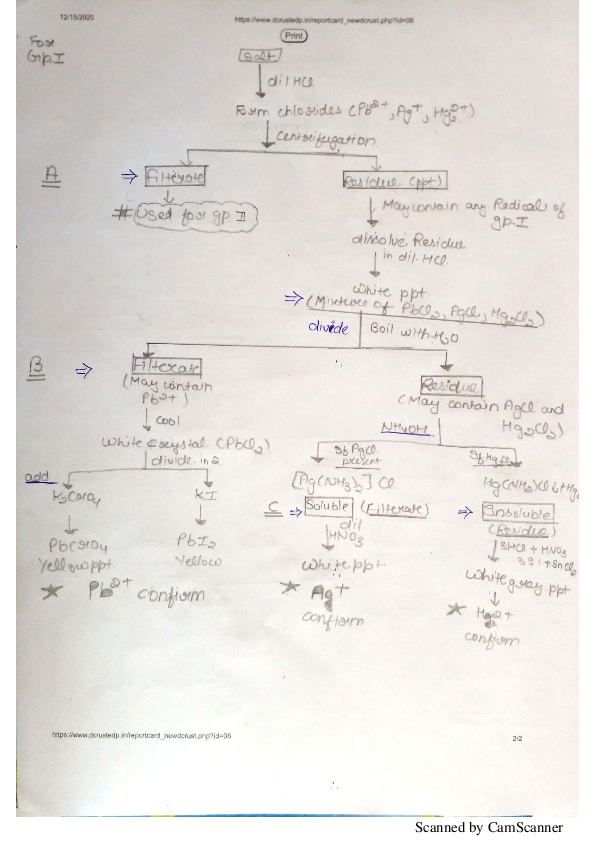 12/15/2020
https://www.dcrustedp.in/reportcard_newdcrust.php?id=06
Print
For
Gp.I
Salt
dil HCl
Form chlorides (Pb2+, Ag+, Hg2 2+)
Centrifugation
A ⇒ Filterate
Residue (ppt)
# Used for gp II
May contain any Radical of
gp. I
dissolve Residue
in dil. HCl.
⇒ White ppt.
(Mixture of PbCl2, AgCl, Hg2Cl2)
divide Boil with H2O
B ⇒ Filterate
(May contain
Pb2+)
Residue
(May contain AgCl and
Hg2Cl2)
cool
NH4OH
White Crystal (PbCl2)
divide in 2
If AgCl
present
add
K2CrO4
KI
[Ag(NH3)2]Cl
Hg(NH2)Cl↓+Hg
C ⇒ Soluble (Filterate)
⇒ Insoluble
(Residue)
PbCrO4
Yellow ppt.
PbI2
Yellow
dil
HNO3
3HCl + HNO3
3:1 + SnCl2
White ppt
White grey ppt
★ Pb2+ confirm
★ Ag+
confirm
★ Hg2+
confirm
https://www.dcrustedp.in/reportcard_newdcrust.php?id=06
2/2
Scanned by CamScanner